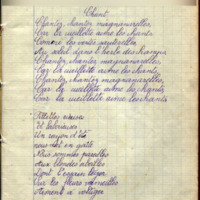 Chant
Chantez, chantez magnanarelles
Car la cueillette aime les chants
Comme les vertes sauterelles
Au soleil dans l'herbe des champs
Chantez, chantez magnanarelles
Car la cueillette aime les chants
Chantez, chantez magnanarelles
Car la cueillette aime les chants
Car la cueillette aime les chants
Fillettes rieuses
et laborieuses
Un rayon d'été
nous met en gaîté
Nous sommes pareilles
aux blondes abeilles
Dont l'essaim léger
sur les fleurs vermeilles
vient à voltiger